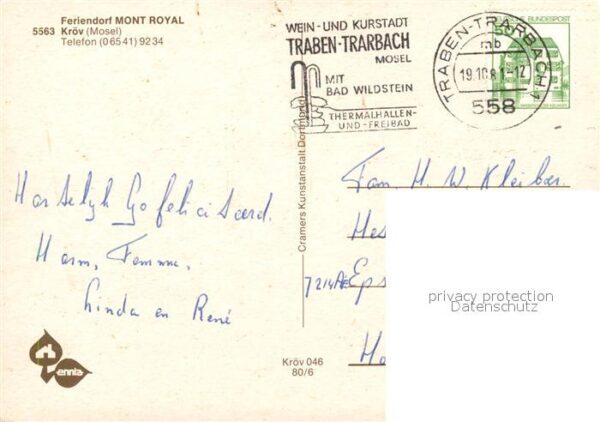 Feriendorf MONT ROYAL
5563 Kröv (Mosel)
Telefon (06541) 9234
WEIN- UND KURSTADT
TRABEN-TRARBACH
MOSEL
MIT
BAD WILDSTEIN
THERMALHALLEN-
UND-FREIBAD
TRABEN-TRARBACH 1
mb
19.10.81-12
558
50
DEUTSCHE BUNDESPOST
Cramers Kunstanstalt Dortmund
Hartelijk Gefeliciteerd.
Harm, Femma,
Linda en René
Fam. H. W. Kleiber
Hes
7214AE Eps
Ho
privacy protection
Datenschutz
ennia
Kröv 046
80/6